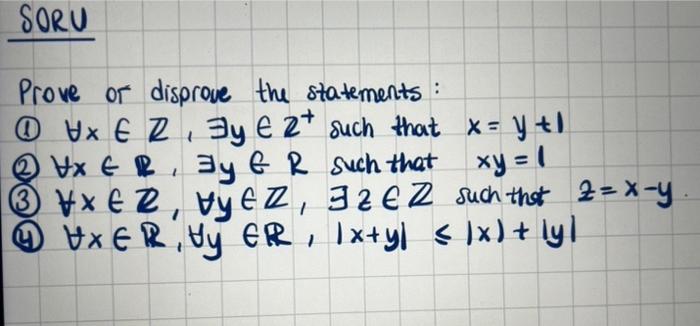 SORU
Prove or disprove the statements :
① ∀x ∈ Z , ∃y ∈ Z⁺ such that x = y +1
② ∀x ∈ R , ∃y ∈ R such that xy = 1
③ ∀x ∈ Z, ∀y ∈ Z, ∃z ∈ Z such that z = x-y .
④ ∀x ∈ R, ∀y ∈ R , |x+y| ≤ |x| + |y|